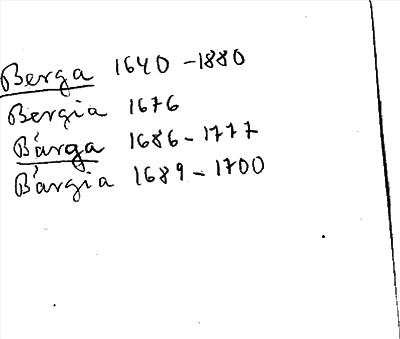 Berga 1640 - 1880
Bergia 1676
Bárga 1686 - 1777
Bárgia 1689 - 1700